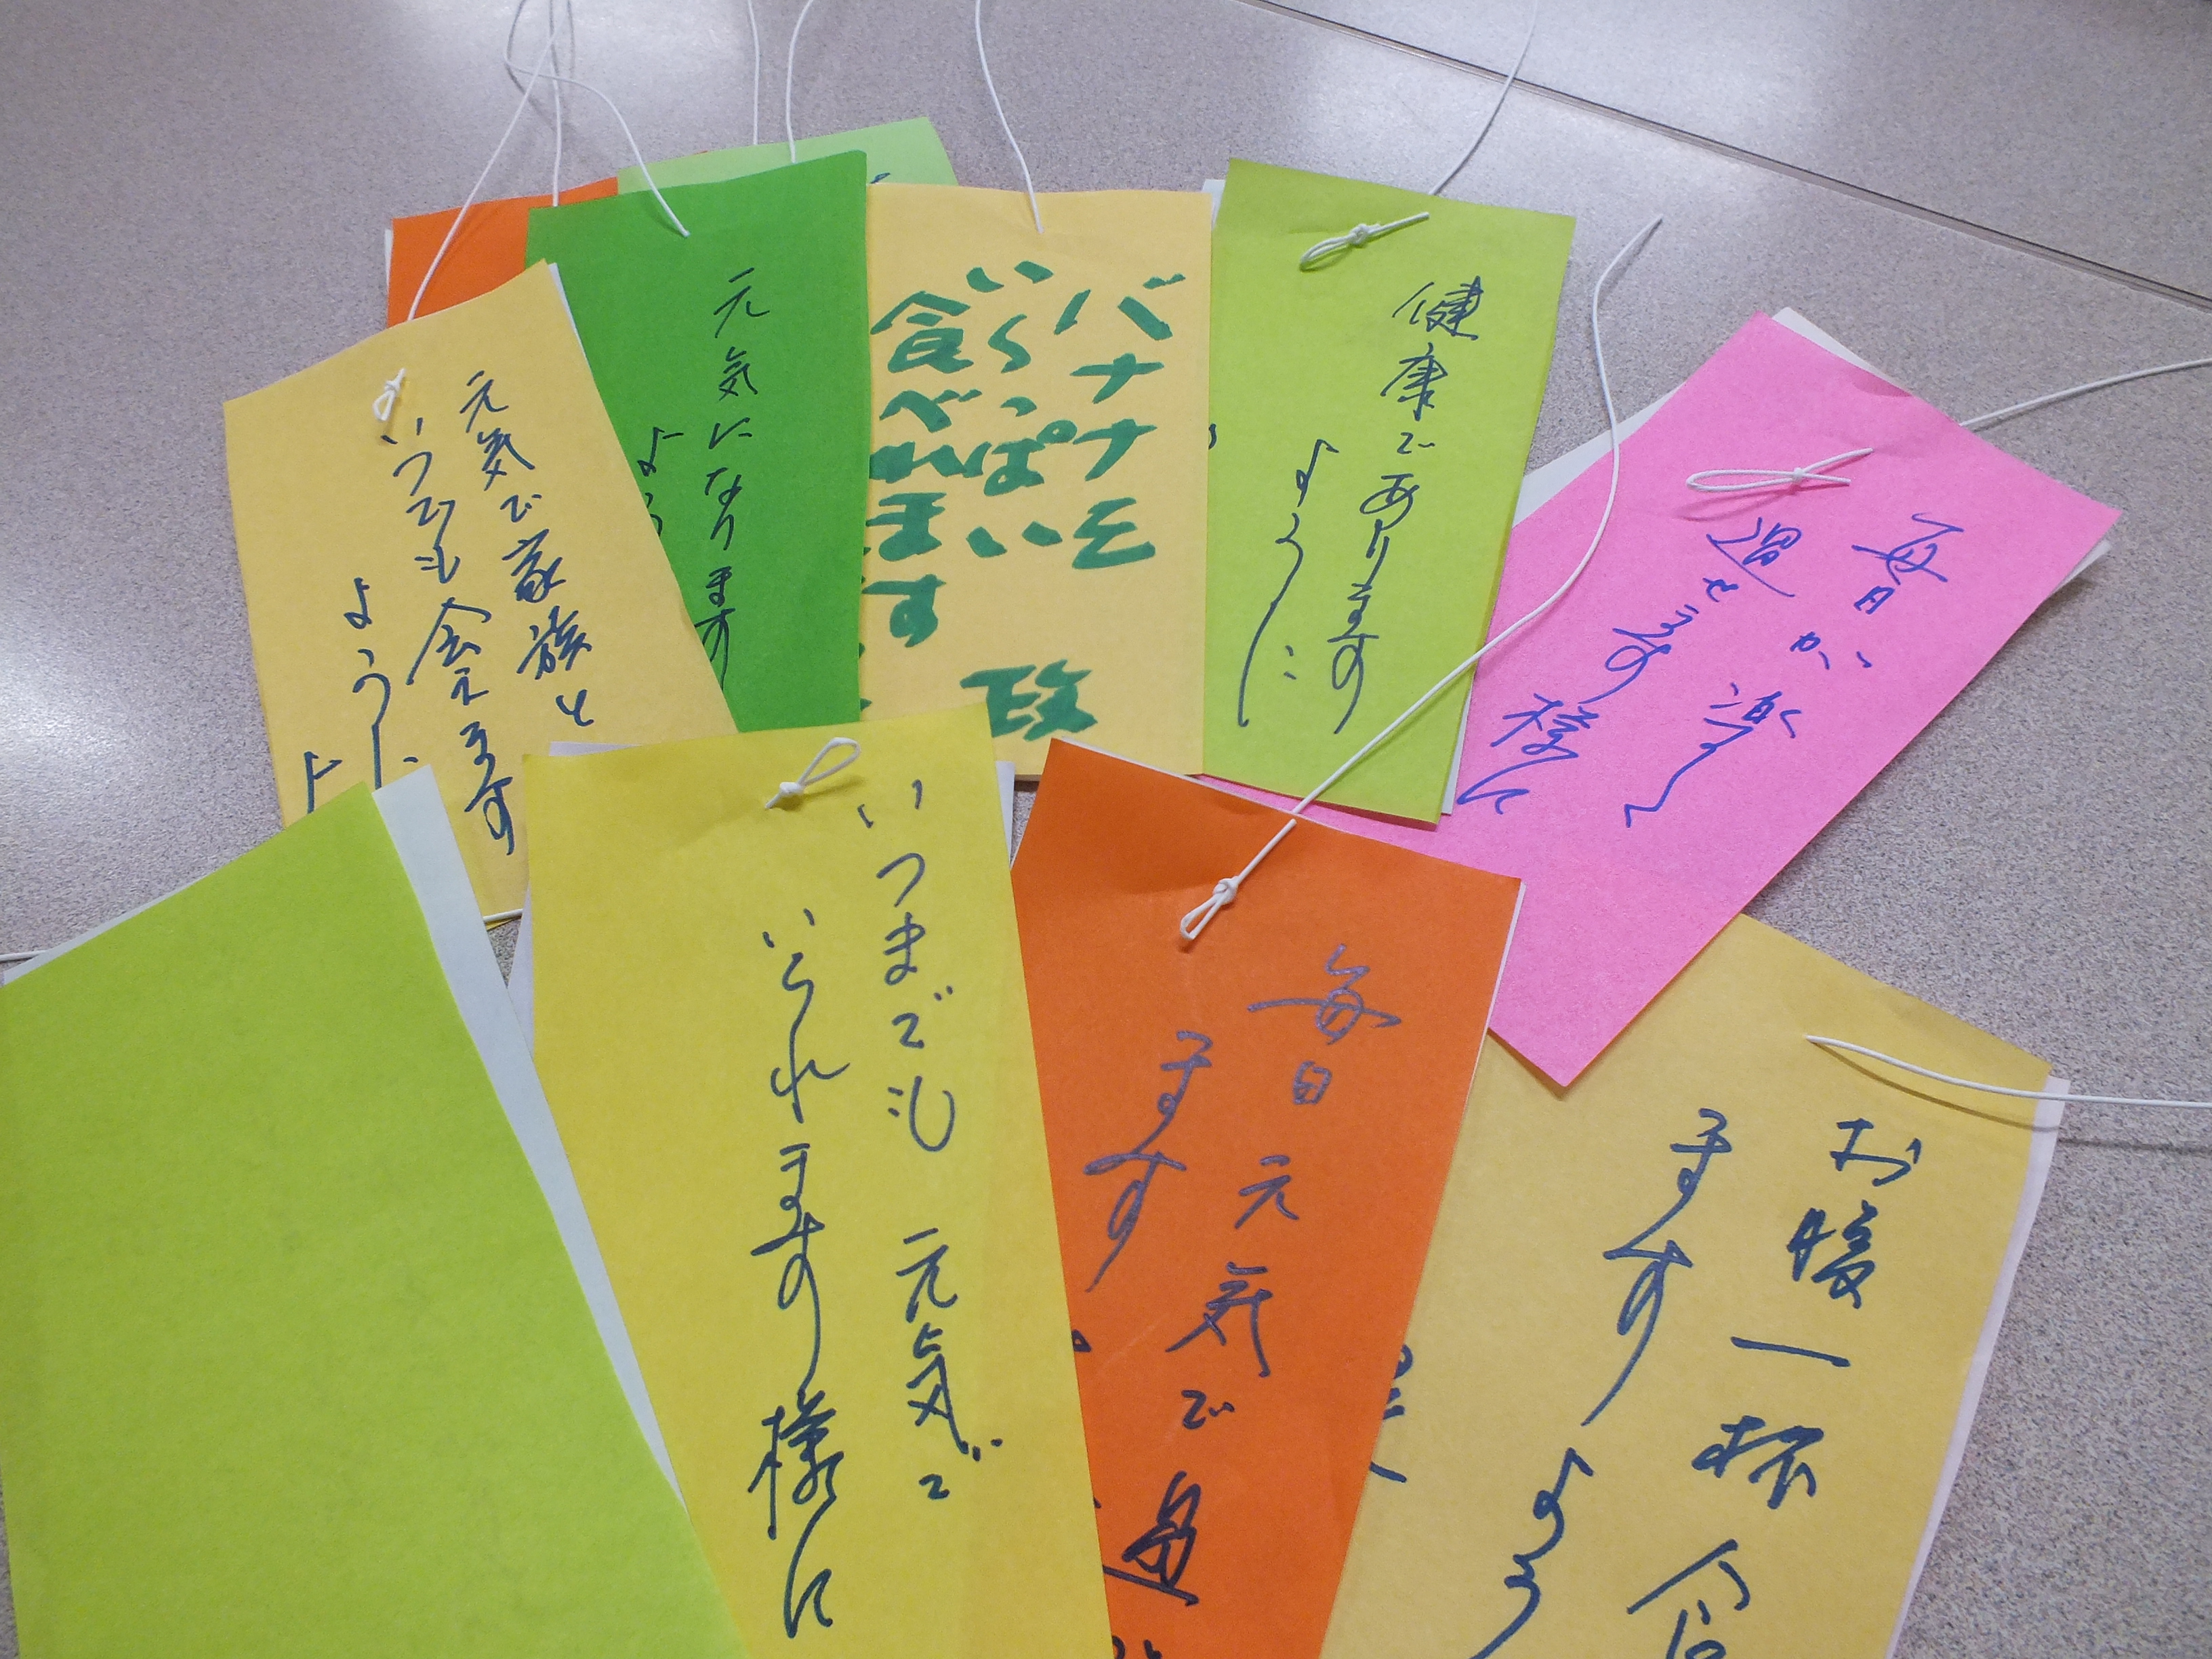 元気で家族と
いつでも会えます
ように
元気になります
よう
バナナを
いっぱい
食べれます
政
健康であります
ように
毎日が楽しく
過せます様に
いつまでも元気で
いられます様に
毎日元気で過
ます
お腹一杯食
ますよう